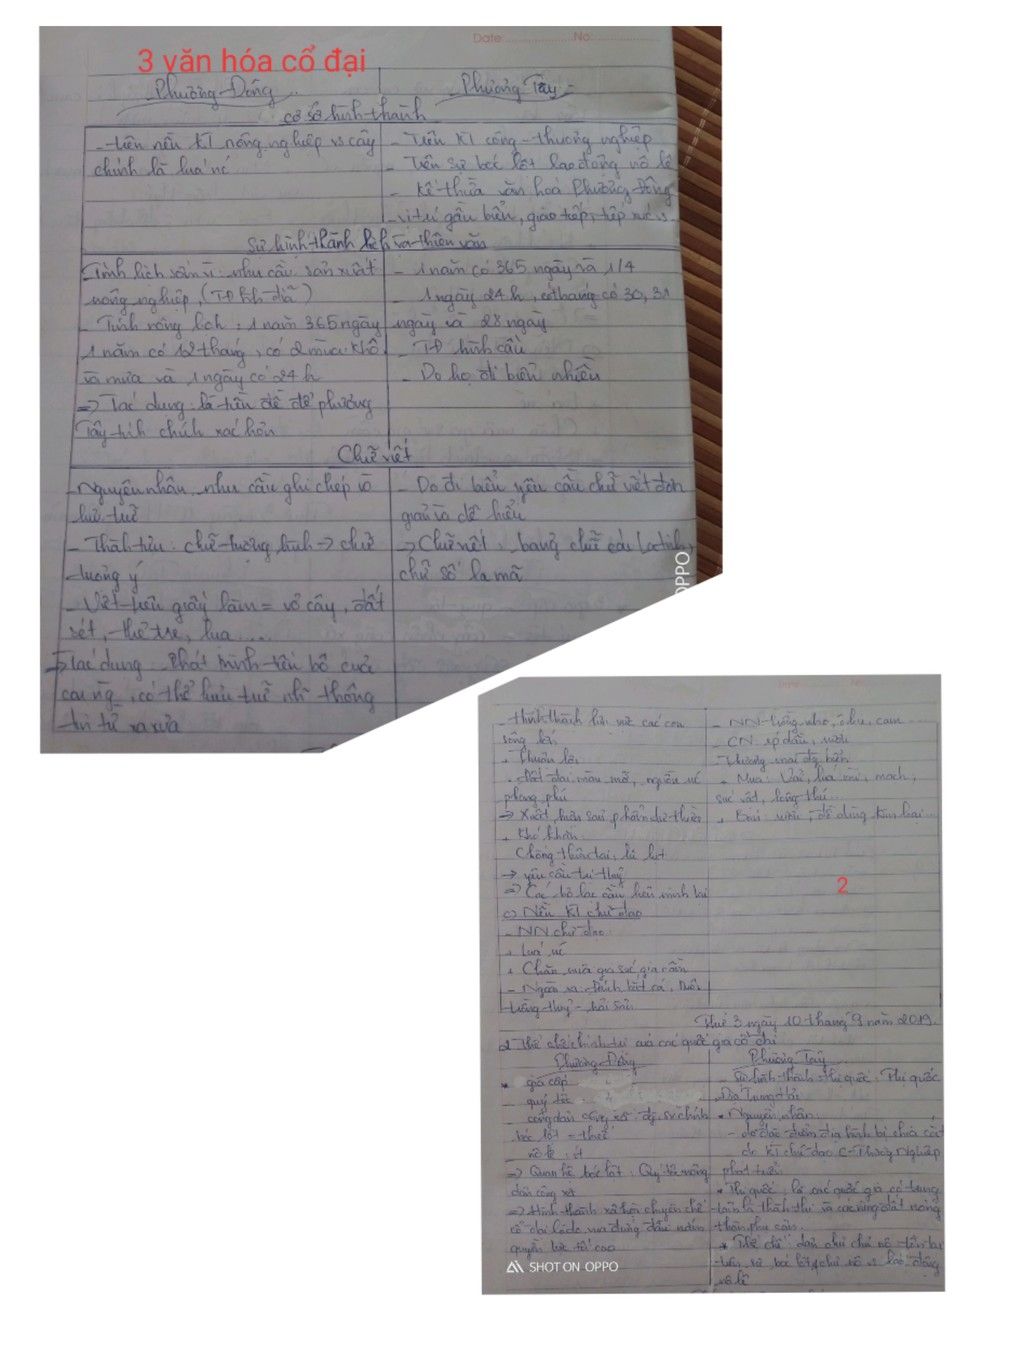 Date: No:
3 văn hóa cổ đại
Phương Đông
Phương Tây
cơ sở hình thành
- trên nền KT nông nghiệp vs cây
chính là lúa nc
- Trên KT công - thương nghiệp
- Trên sự bóc lột lao động nô lệ
- Kế thừa văn hoá Phương Đông
- vị trí gần biển, giao tiếp, tiếp xúc
Sự hình thành lịch và thiên văn
- Tính lịch sớm vì nhu cầu sản xuất
nông nghiệp,
- Tính nông lịch: 1 năm 365 ngày
1 năm có 12 tháng, có 2 mùa: khô
và mưa và 1 ngày có 24h
=> Tác dụng: là tiền đề để phương
Tây tính chính xác hơn
- 1 năm có 365 ngày và 1/4
- 1 ngày 24h, có tháng có 30, 31
ngày và 28 ngày
- TĐ hình cầu
- Do họ đi biển nhiều
Chữ viết
- Nguyên nhân: nhu cầu ghi chép và
lưu trữ
- Thành tựu: chữ tượng hình -> chữ
tượng ý
- Viết trên giấy làm = vỏ cây, đất
sét, thẻ tre, lụa ....
=> Tác dụng: Phát minh tiến bộ của
con ng, có thể lưu trữ
từ xa xưa
- Do đi biển yêu cầu chữ viết đơn
giản và dễ hiểu
-> Chữ viết: bảng chữ cái
chữ số la mã
OPPO
- Hình thành lưu vực các con
sông lớn
+ Thuận lợi
- Đất đai màu mỡ, nguồn nc
phong phú
=> Xuất hiện sản phẩm dư thừa
+ Khó khăn
Chống thiên tai, lũ lụt
-> yêu cầu trị thuỷ
=> Các bộ lạc cần liên minh lại
c) Nền KT chủ đạo
- NN chủ đạo:
+ Lúa nc
+ Chăn nuôi gia súc, gia cầm
- Ngoài ra: đánh bắt cá, nuôi
trồng thuỷ - hải sản
- NN trồng nho, ôliu, cam
- CN ép dầu, rượu
- Thương mại đg biển
+ Mua: Vải, lúa mì, mạch,
súc vật, lông thú...
+ Bán: rượu, đồ dùng kim loại...
2
Thứ 3 ngày 10 tháng 9 năm 2019.
2 Thể chế chính trị của các quốc gia cổ đại
Phương Đông
Phương Tây
* giai cấp
- quý tộc
- nông dân công xã:
bóc lột = thuế
- nô lệ: ít
=> Quan hệ bóc lột: Quý tộc nông
dân công xã
=> Hình thành xã hội chuyên chế
cổ đại do vua đứng đầu nắm
quyền lực tối cao
- Sự hình thành thị quốc: Thị quốc
Địa Trung Hải
* Nguyên nhân:
- do đặc điểm địa hình bị chia cắt
- do KT chủ đạo C-Thương Nghiệp
phát triển
* Thị quốc: là các quốc gia có trung
tâm là thành thị và các vùng đất nông
thôn phụ cận.
* Thể chế: dân chủ chủ nô tồn tại
trên sự bóc lột chủ nô vs lao động
nô lệ
SHOT ON OPPO